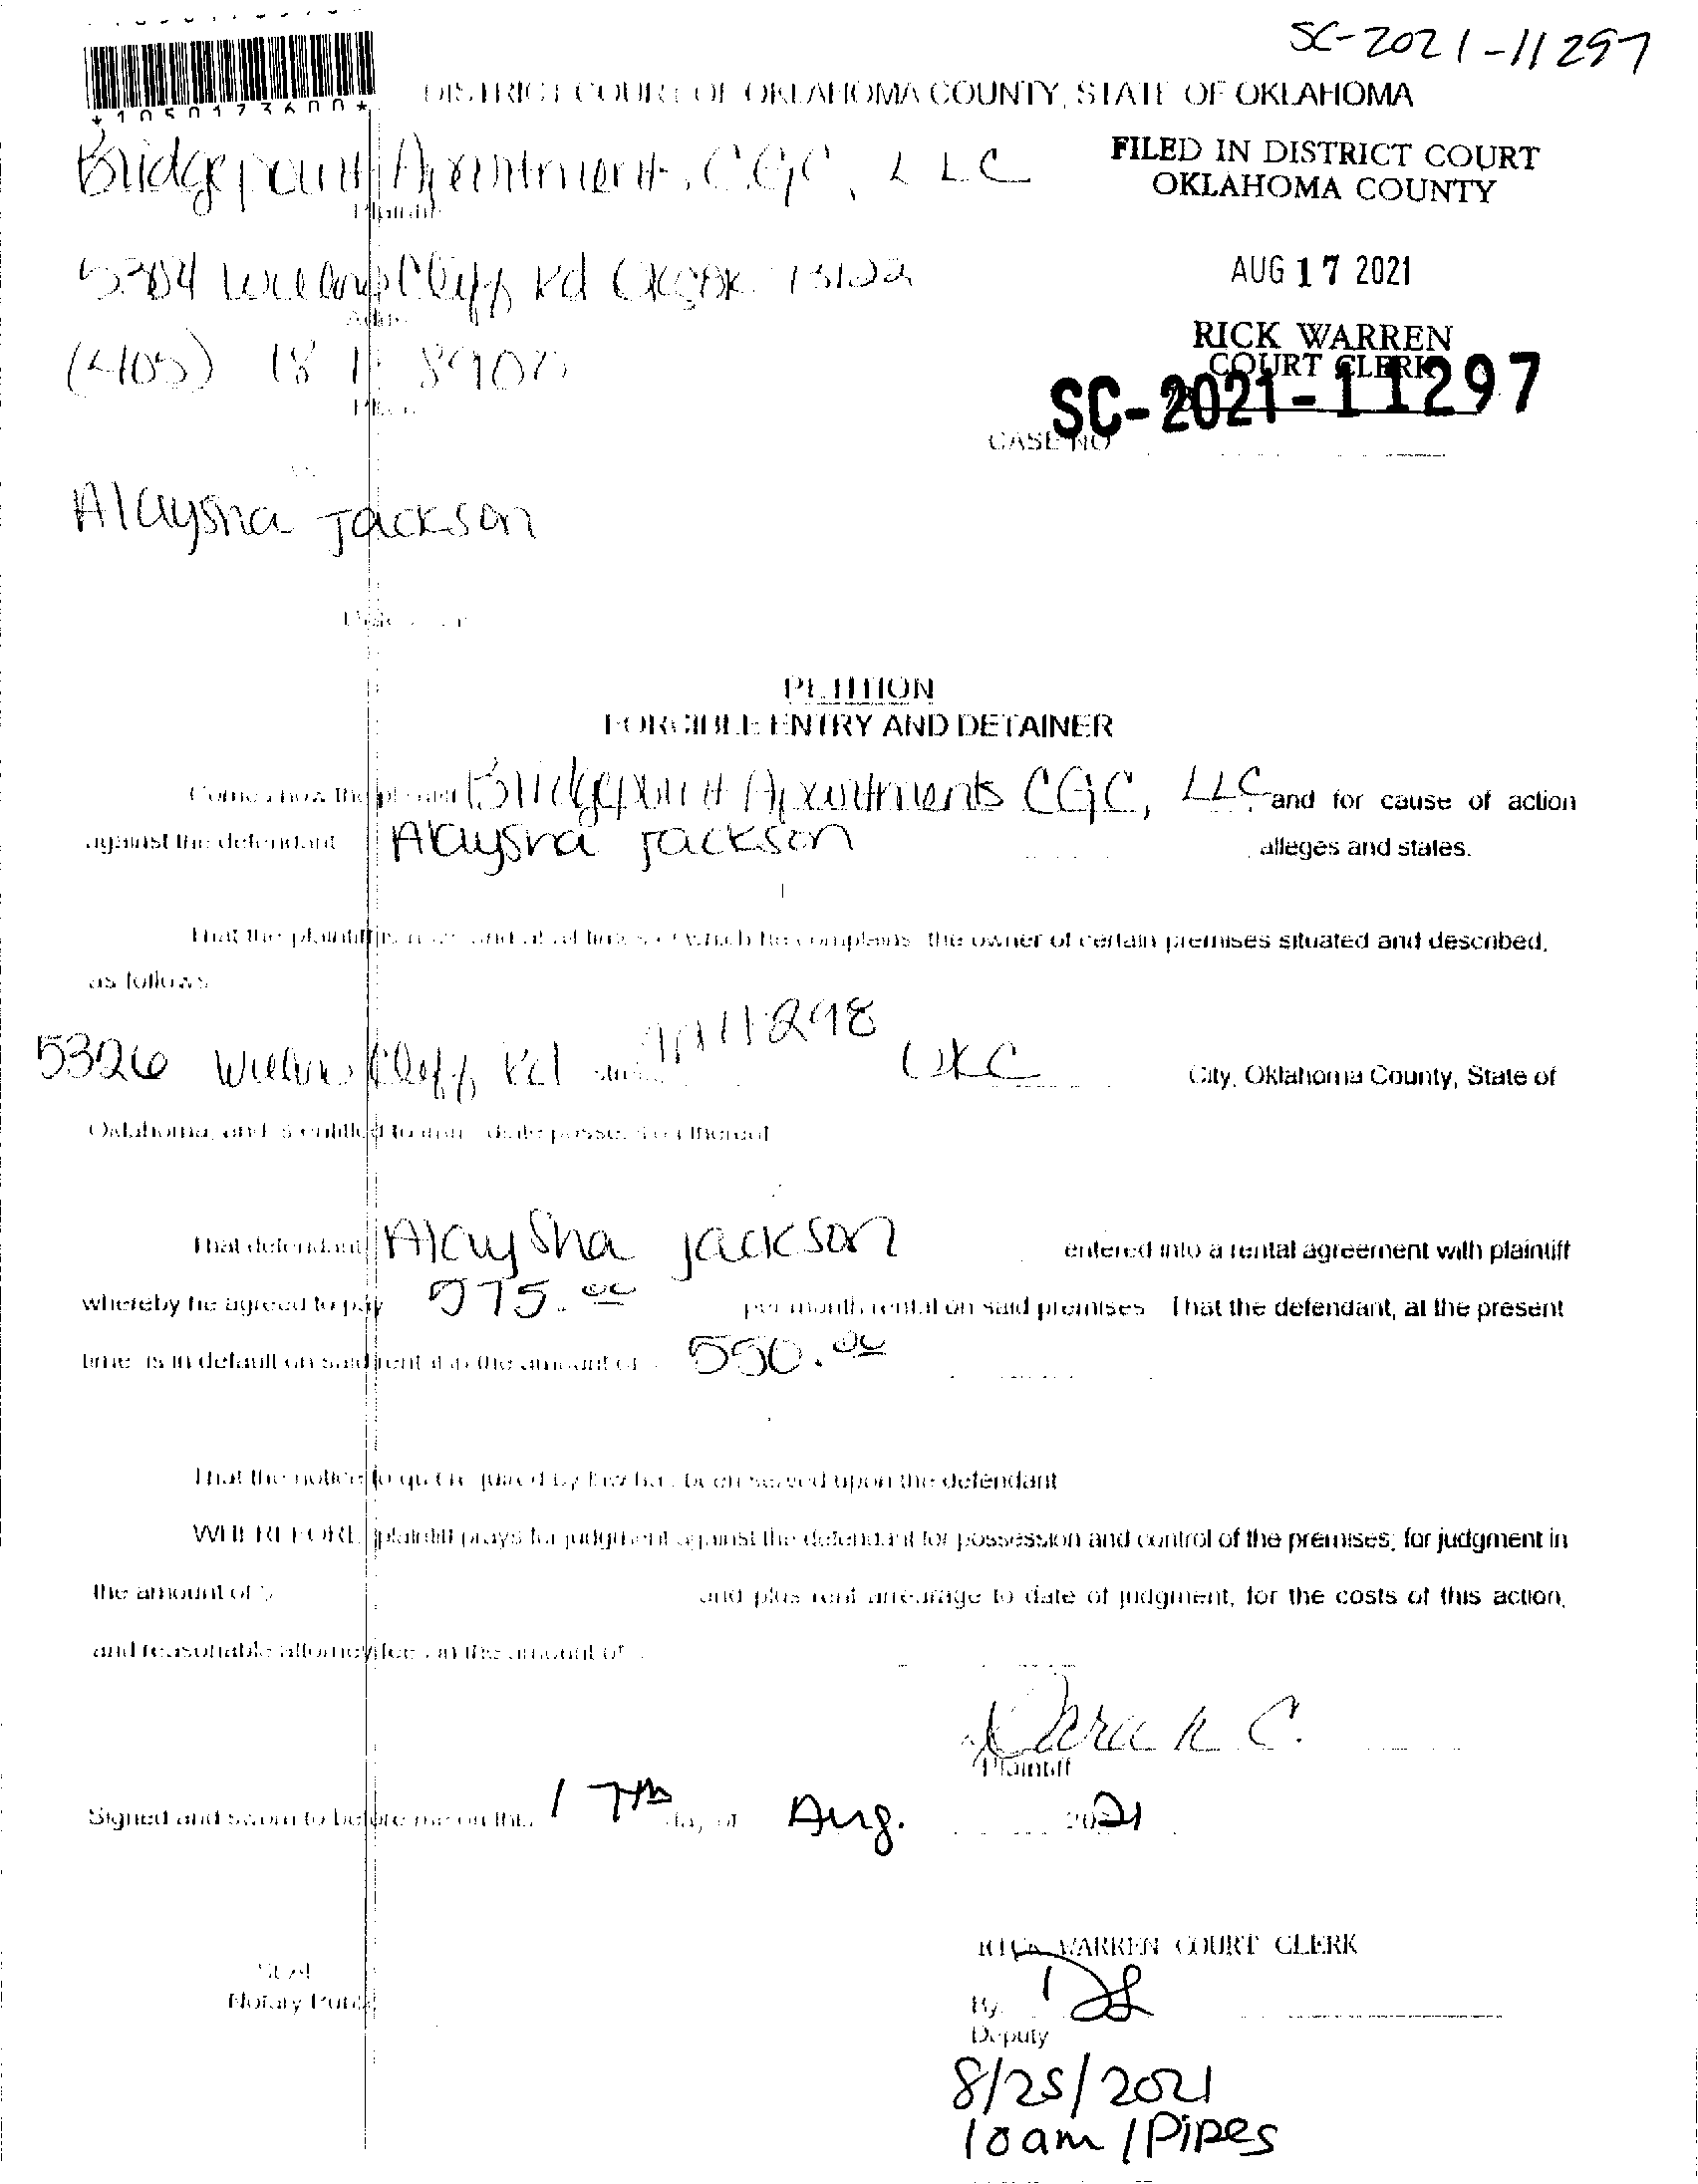 SC-2021-11297
*1050173600*
DISTRICT COURT OF OKLAHOMA COUNTY, STATE OF OKLAHOMA
Bridgepoint Apartments CGC, LLC
FILED IN DISTRICT COURT
OKLAHOMA COUNTY
Plaintiff
Cliff Rd
AUG 17 2021
Address
RICK WARREN
COURT CLERK
(405)
Phone
SC-2021-11297
CASE NO
vs
Alaysha Jackson
PETITION
FORCIBLE ENTRY AND DETAINER
Comes now the plaintiff Bridgepoint Apartments CGC, LLC and for cause of action
against the defendant Alaysha Jackson alleges and states.
That the plaintiff is now and at all times of which he complains, the owner of certain premises situated and described,
as follows
5326 Cliff Rd OKC City, Oklahoma County, State of
Oklahoma, and is entitled to immediate possession thereof
That defendant Alaysha Jackson entered into a rental agreement with plaintiff
whereby he agreed to pay 75.00 per month rental on said premises That the defendant, at the present
time is in default on said rental in the amount of 550.00
That the notice to quit required by law has been served upon the defendant
WHEREFORE, plaintiff prays for judgment against the defendant for possession and control of the premises; for judgment in
the amount of $ and plus rent arrearage to date of judgment, for the costs of this action,
and reasonable attorney fees in the amount of
Plaintiff
Signed and sworn to before me on this 17th day of Aug. 2021
RICK WARREN COURT CLERK
Seal
Notary Public
By
Deputy
8/25/2021
10am / Pipes